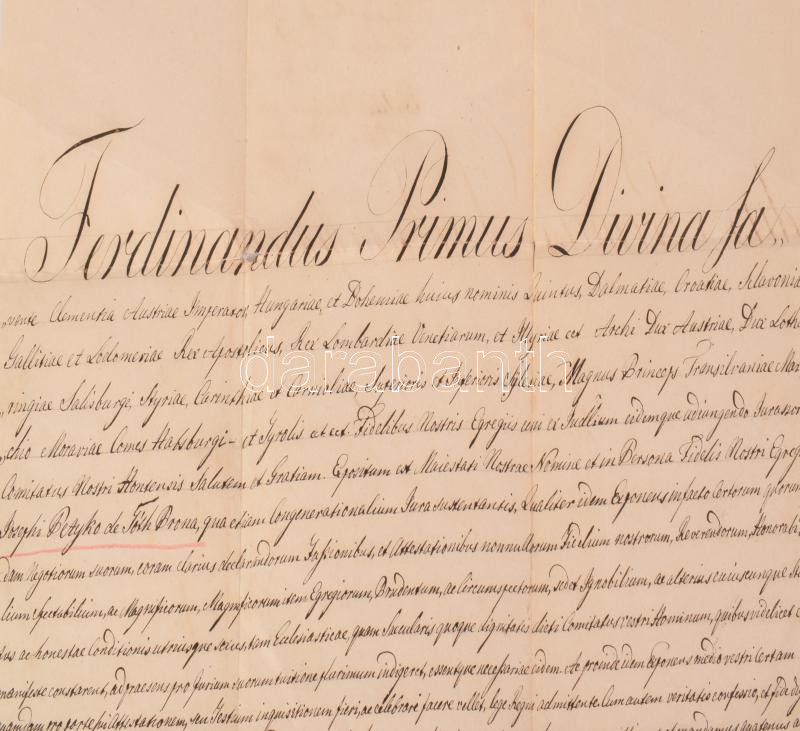 Ferdinandus Primus Divina fa„
„vente Clementia Austriae Imperator, Hungariae, et Bohemiae huius nominis Quintus, Dalmatiae, Croatiae, Sclavonia
Gallitiae et Lodomeriae Rex Apostolicus, Rex Lombardiae Venetiarum, et Illyriae cet Archi Dux Austriae, Dux Loth
darabanth
„ringiae Salisburgi, Styriae, Carinthiae et Carnioliae, Superioris et Inferioris Sylesiae, Magnus Princeps Transilvaniae Mar
„chio Moraviae Comes Habsburgi- et Tyrolis et cet Fidelibus Nostris Egregiis uni ex Judlium eidemque adiungendo Jurassor
Comitatus Nostri Hontensis Salutem et Gratiam. Expositum est Maiestati Nostrae Nomine et in Persona Fidelis Nostri Egreg
Josephi Petyko de Tóth Prona, qua etiam Congenerationalium Jura sustentantis, Qualiter idem Exponens in facto Certorum quorum
dam Negotiorum suorum, coram clarius declarandorum Fassionibus, et Attestationibus nonnullorum Fidelium nostrorum, Reverendorum, Honorabi
lium Spectabilium, ac Magnificorum, Magnificorum item Egregiorum, Prudentum, ac Circumspectorum, sed et Ignobilium, ac alterius cuiuscunque Sta
tus ac honestae Conditionis utriusque sexus, tam Ecclesiasticae, quam Saecularis quoque dignitatis dicti Comitatus vestri Hominum, quibus videlicet
manifeste constarent, ad praesens pro Jurium suorum tuitione plurimum indigeret, essentque necessariae eidem. Ac proinde idem Exponens medio vestri Certam
quamdam pro parte sui Attestationem, seu Testium inquisitionem fieri, ac celebrare facere vellet, lege Regni admittente. Cum autem veritatis confessio, et fide
mandamus